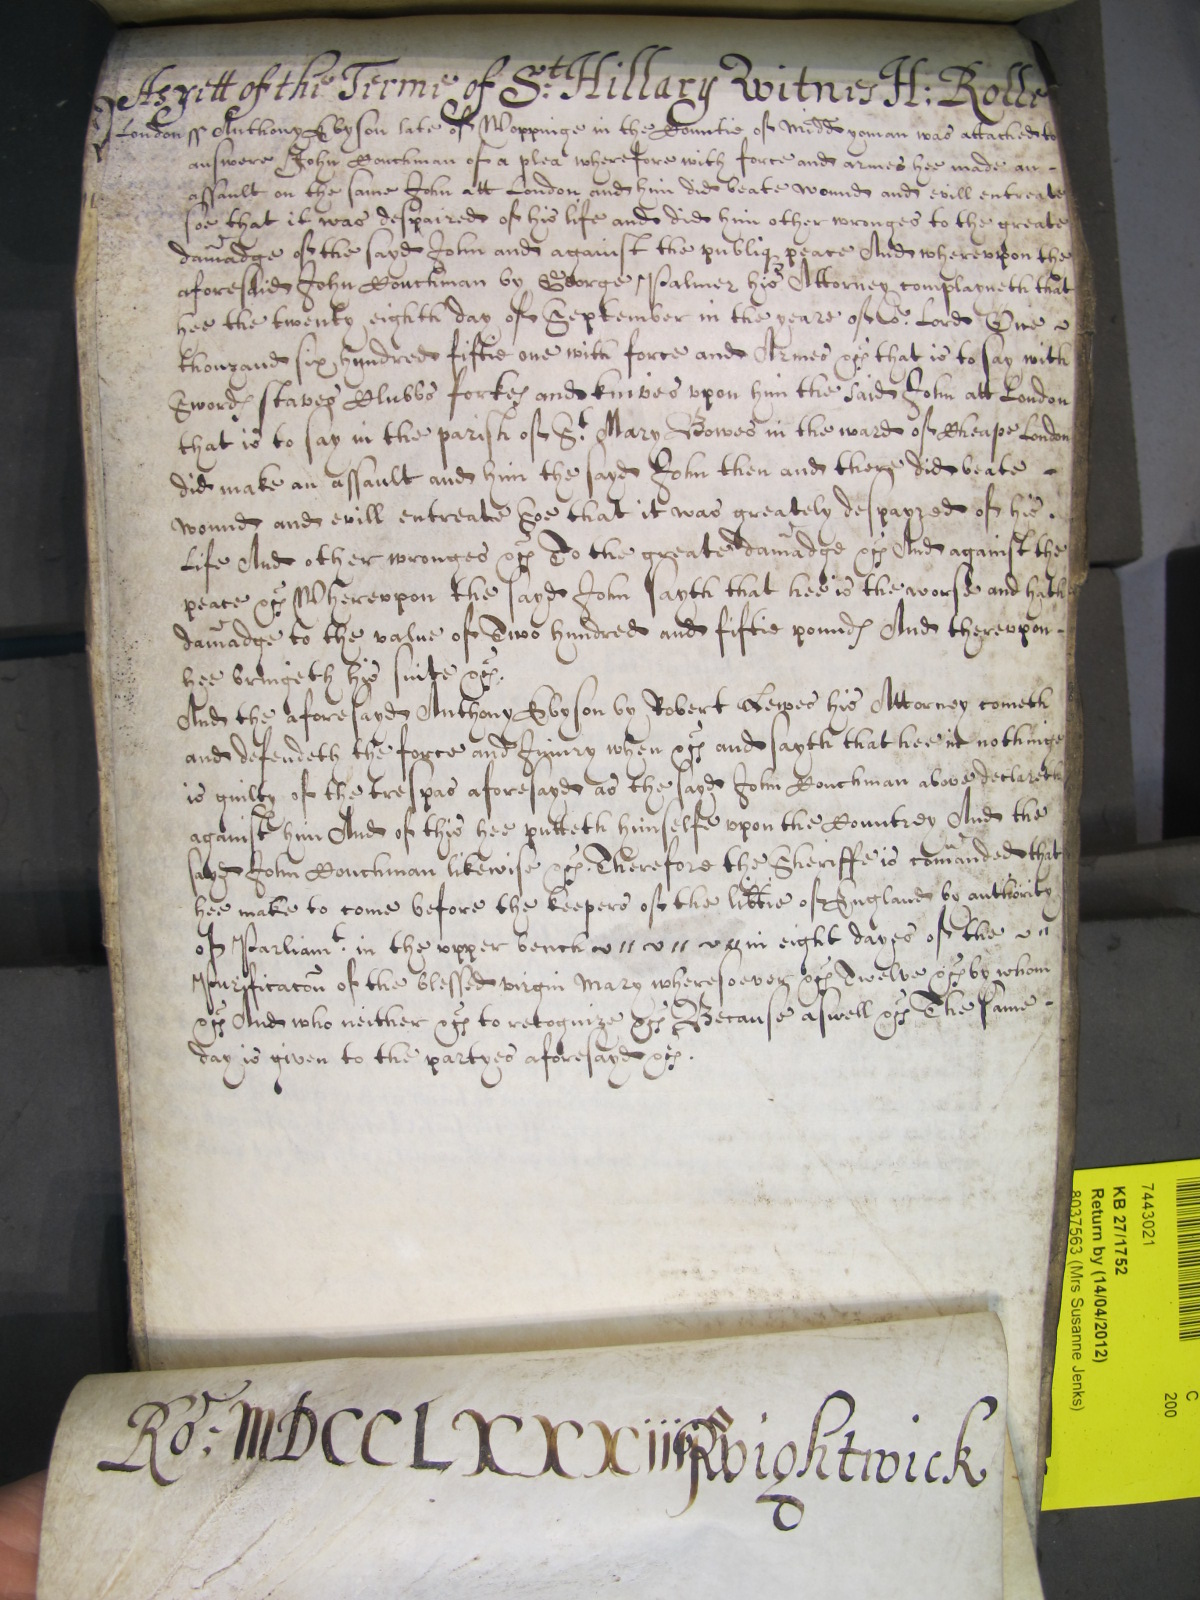 As yett of the Terme of St. Hillary Witnes H: Rolle
London ss Anthony Ebyson late of Woppinge in the Countie of Midd yoman was attached to
answere John Couchman of a plea wherefore with force and armes hee made an -
assault on the same John att London and him did beate wound and evill entreate
soe that it was despaired of his life and did him other wronges to the greate
damadge of the sayd John and against the publiq peace And wherevpon the
aforesaid John Couchman by George Palmer his Attorney complayneth that
hee the twenty eighth day of September in the yeare of or. Lord One
thouzand six hundred fiftie one with force and Armes &c that is to say with
Swordes staves Clubbs forkes and knives vpon him the said John att London
that is to say in the parish of St Mary Bowes in the ward of Cheape London
did make an assault and him the sayd John then and there did beate -
wound and evill entreate Soe that it was greately despayred of his .
Life And other wronges &c To the greate damadge &c And against the
peace &c Wherevpon the sayd John sayth that hee is the worse and hath
damadge to the value of Two hundred and fiftie poundes And therevpon -
hee bringeth his suite &c.
And the aforesayd Anthony Ebyson by Robert Lewes his Attorney cometh
and defendeth the force and Injury when &c and sayth that hee in nothinge
is guilty of the trespas aforesayd as the sayd John Couchman above declareth
against him And of this hee putteth himselfe vpon the Countrey And the
sayd John Couchman likewise &c. Therefore the Sheriffe is comanded that
hee make to come before the keepers of the libtie of England by authority
of Parliamt. in the vpper bench in eight dayes of the
Purificacon of the blessed virgin Mary wheresoever &c Twelve &c by whom
&c And who neither &c to recognize &c Because aswell &c The same -
day is given to the partyes aforesayd &c.
Ro: MDCCLXXXiiij Wightwick
7443021
KB 27/1752
Return by (14/04/2012)
8037563 (Mrs Susanne Jenks)
C
200